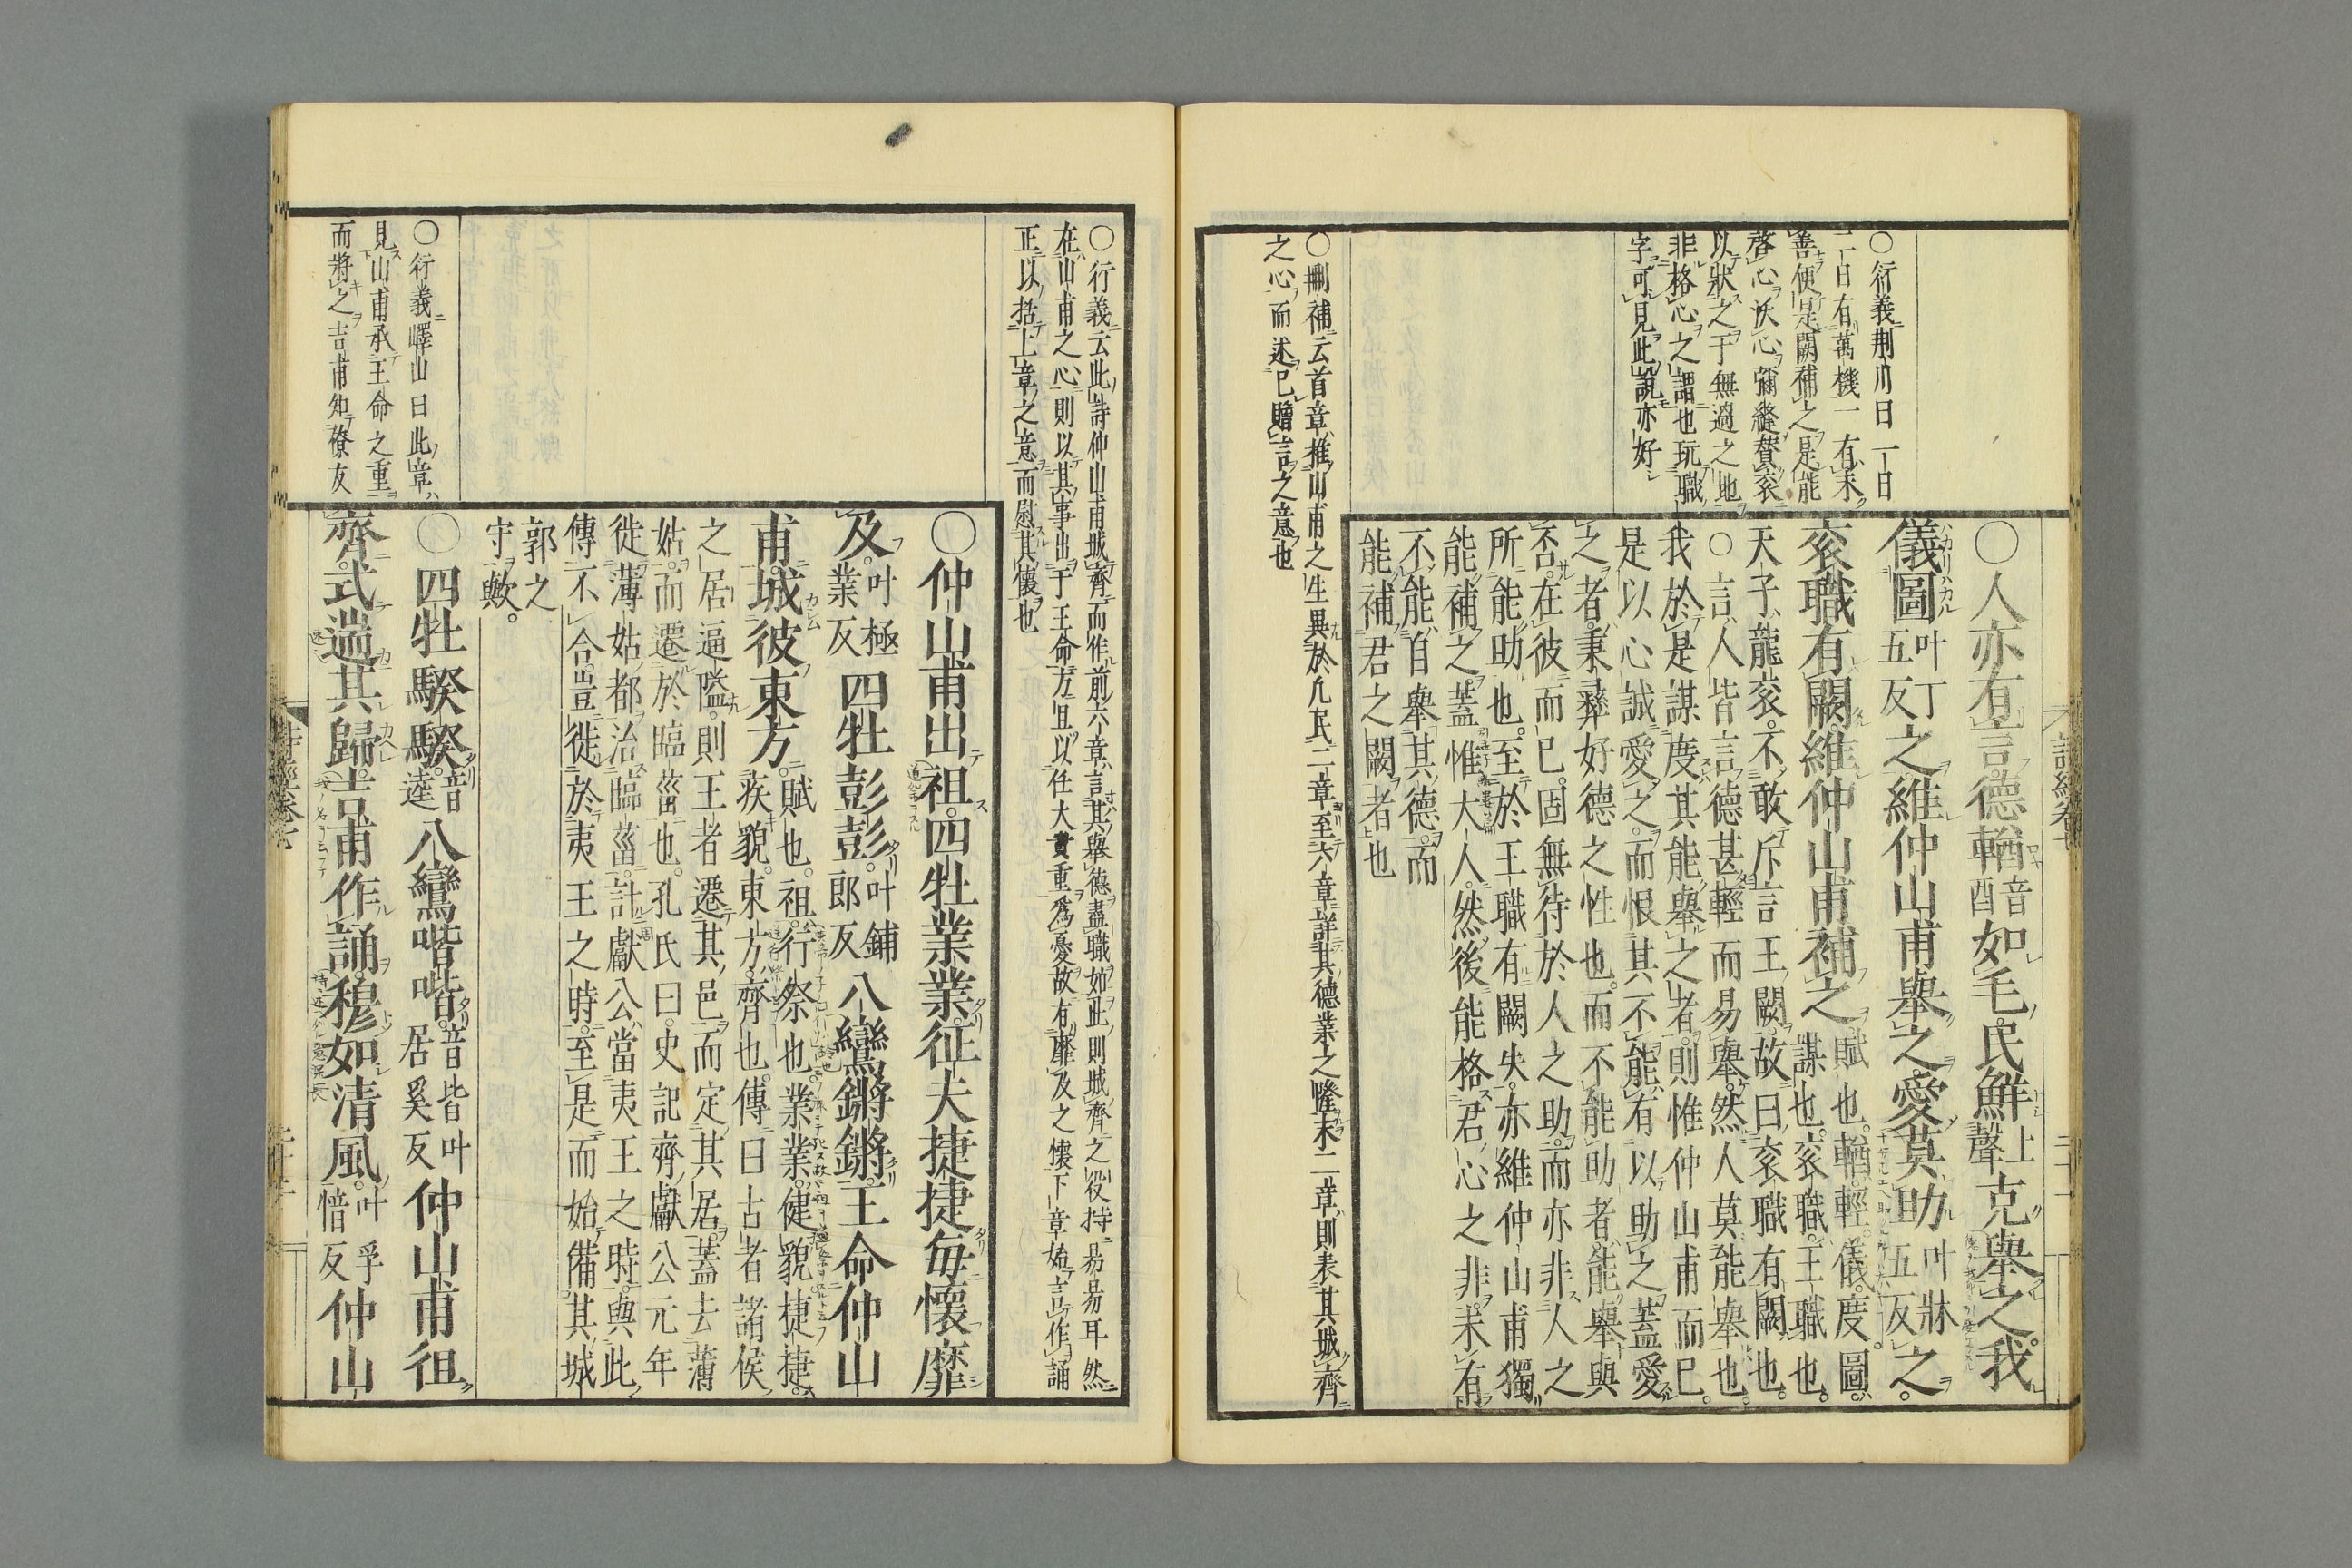 ○人亦有言德輶音酉如毛民鮮上聲克舉之我
儀圖叶丁五反之維仲山甫舉之愛莫助叶牀五反之
袞職有闕維仲山甫補之賦也輶輕儀度圖
謀也袞職王職也
天子龍袞不敢斥言王闕故曰袞職有闕也
○言人皆言德甚輕而易舉然人莫能舉也
我於是謀度其能舉之者則惟仲山甫而已
是以心誠愛之而恨其不能有以助之蓋愛
之者秉彝好德之性也而不能助者能舉與
否在彼而已固無待於人之助而亦非人之
所能助也至於王職有闕失亦維仲山甫獨
能補之蓋惟大人然後能格君心之非未有
不能自舉其德而
能補君之闕者也
○衍義荆川曰一日
二日有萬機一有未
善便是闕補之是能
啓心沃心彌縫賛袞
以狀之于無過之地
非格心之謂也玩職
字可見此說亦好
○刪補云首章推山甫之生異於凡民二章至六章詳其德業之隆末二章則表其城齊
之心而述已贈言之意也
○行義云此詩仲山甫城齊而作前六章言其舉德盡職如此則城齊之役持易易耳然
在山甫之心則以其事出于王命方且以任大責重爲憂故有靡及之懷下章始言作誦
正以括上章之意而慰其懷也
○仲山甫出祖四牡業業征夫捷捷每懷靡
及叶極業反四牡彭彭叶鋪郎反八鸞鏘鏘王命仲山
甫城彼東方賦也祖行祭也業業健貌捷捷
疾貌東方齊也傳曰古者諸侯
之居逼隘則王者遷其邑而定其居蓋去薄
姑而遷於臨菑也孔氏曰史記齊獻公元年
徙薄姑都治臨菑計獻公當夷王之時與此
傳不合豈徙於夷王之時至是而始備其城
郭之
守歟
○四牡騤騤音逵八鸞喈喈音皆叶居奚反仲山甫徂
齊式遄其歸吉甫作誦穆如清風叶孚愔反仲山
○行義嶧山曰此章
見山甫承王命之重
而將之吉甫知僚友